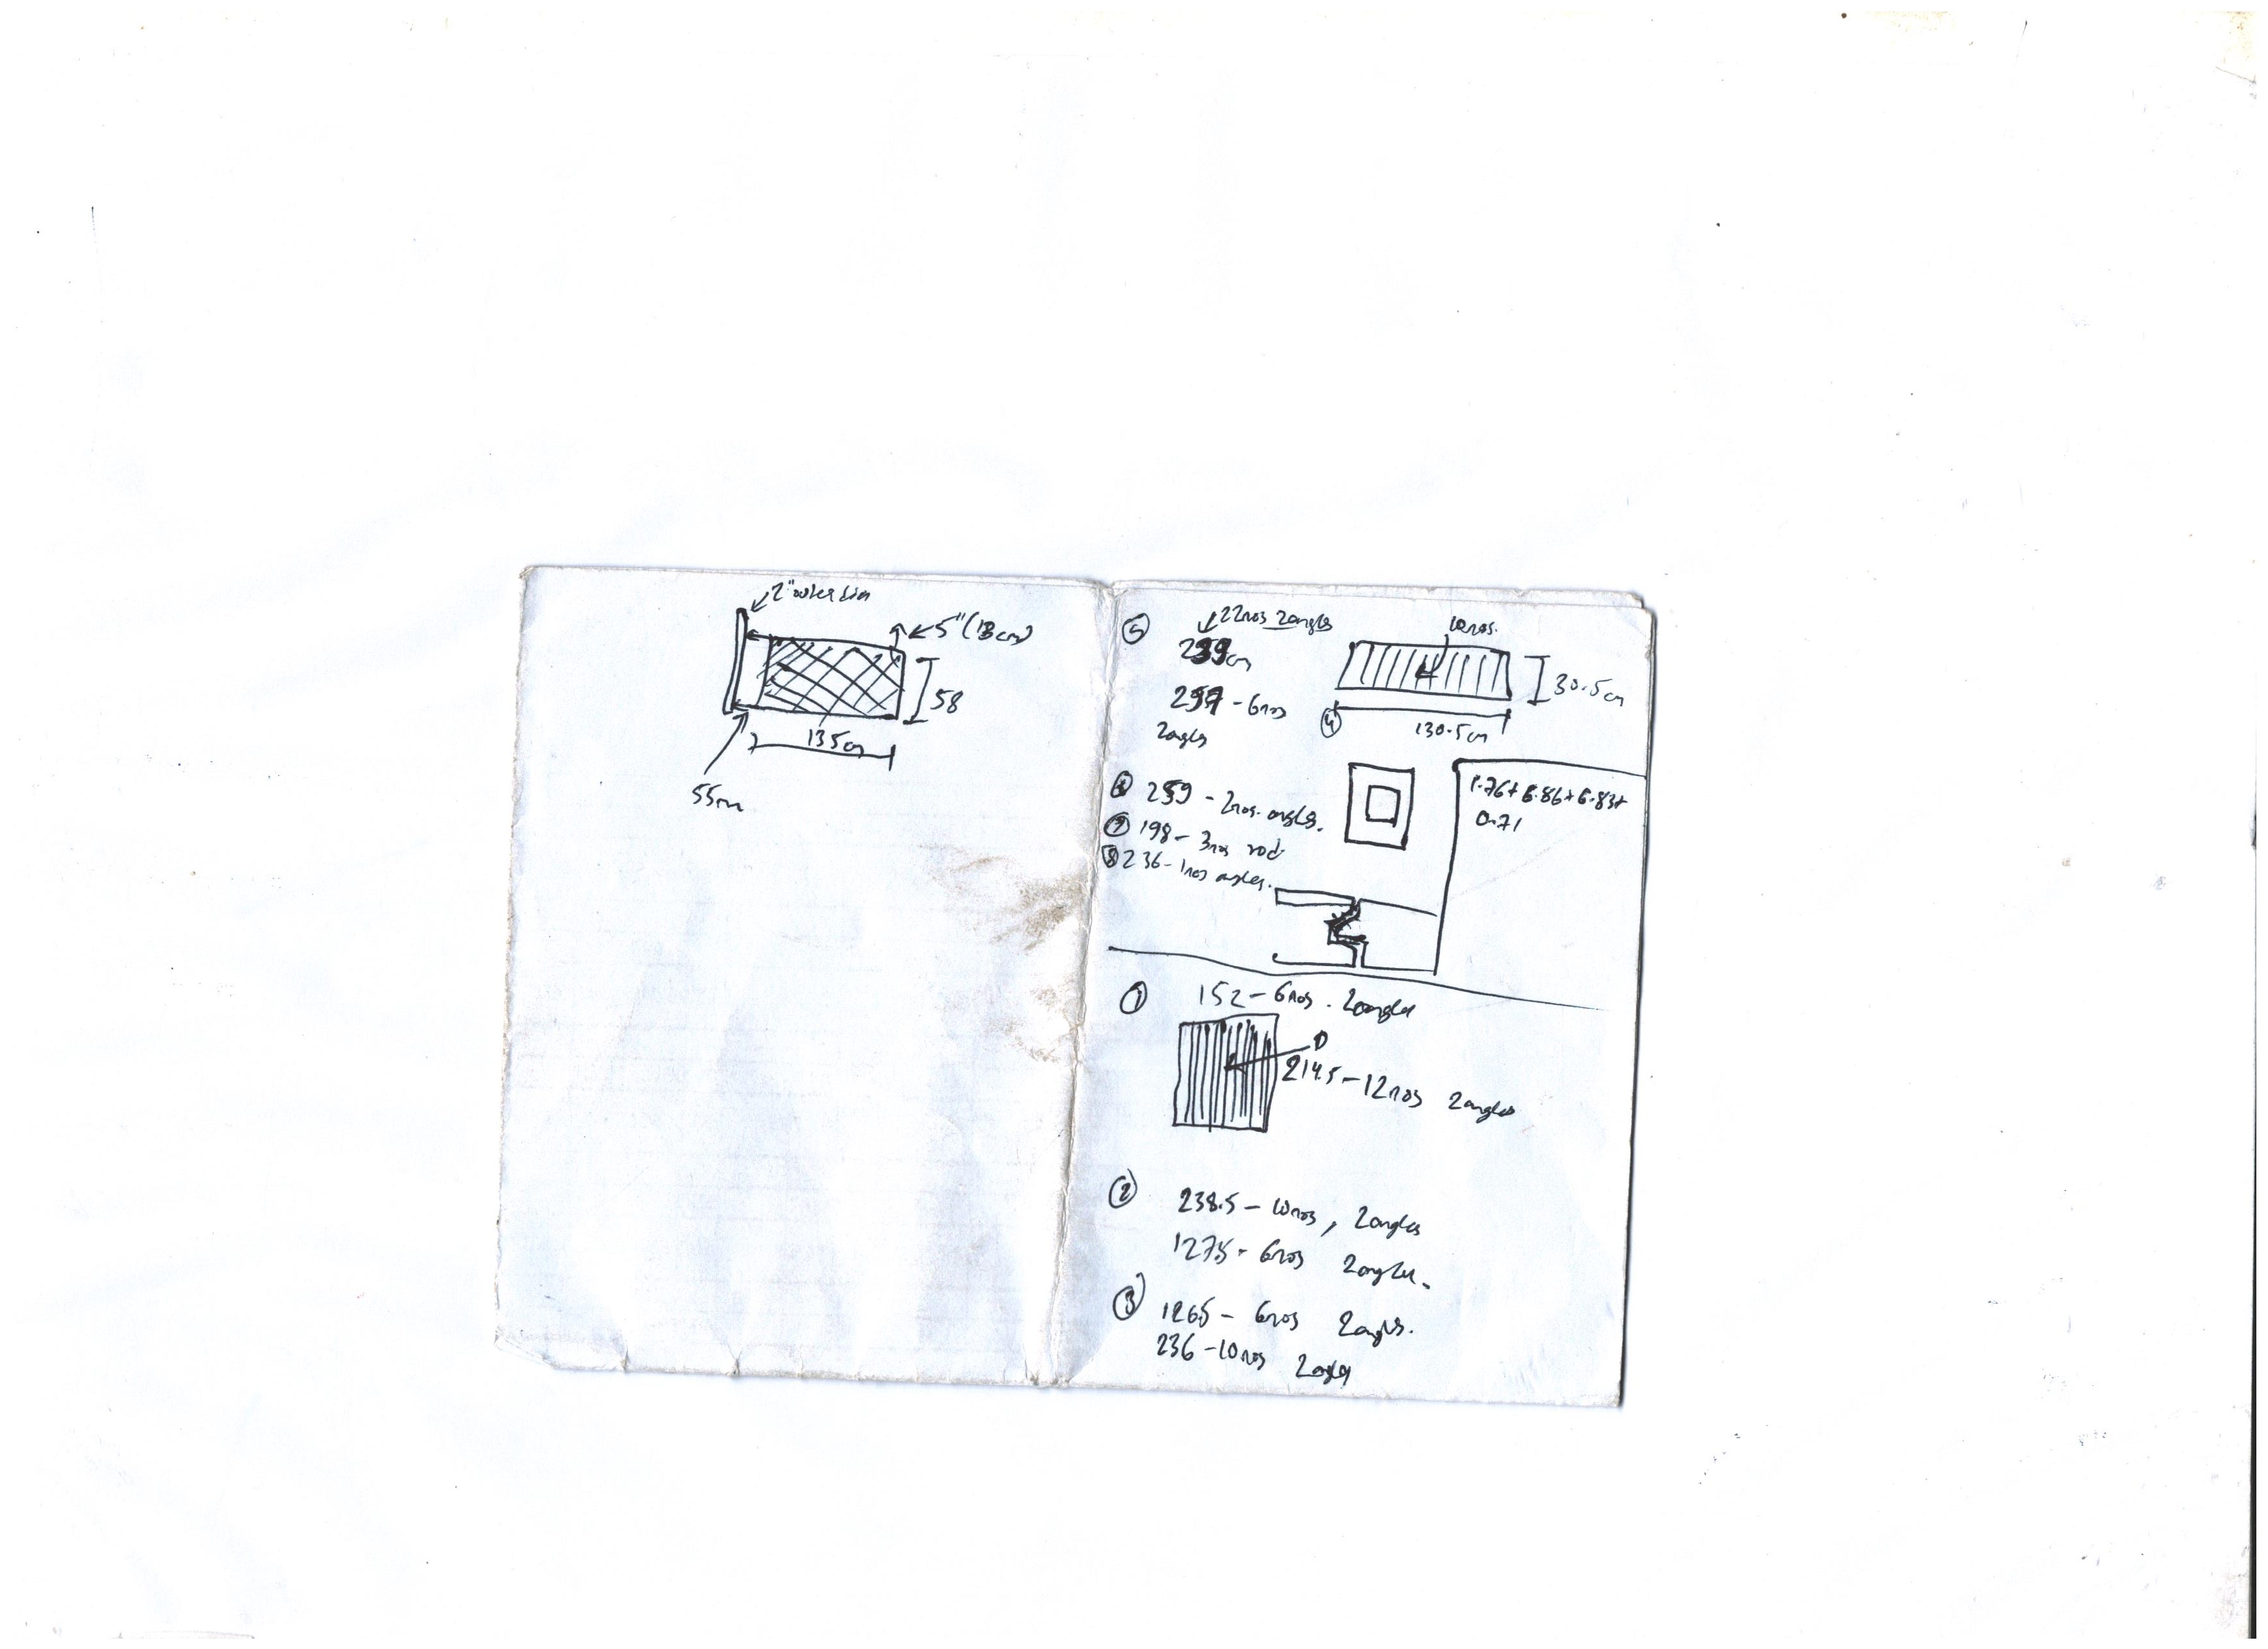 2" outer dia
5" (13cm)
58
135cm
55cm
5
22nos 2angles
239cm
10nos.
30.5cm
297 - 6nos
2angles
4
130.5cm
6 259 - 2nos. angles.
7 198 - 3nos rod
8 236 - 1nos angles.
0.71
1 152 - 6nos. 2angles
214.5 - 12nos 2angles
2 238.5 - 10nos, 2angles
127.5 - 6nos 2angles.
3 126.5 - 6nos 2angles.
236 - 10nos 2angles